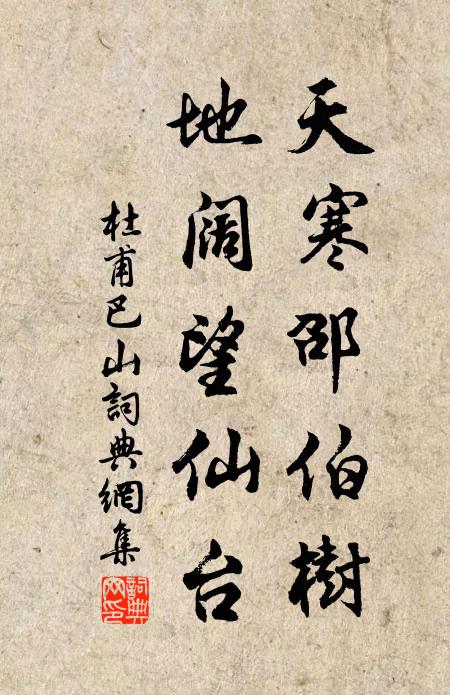 天寒邵伯樹
地阔望仙台
杜甫巴山詞典網集
詞典网印